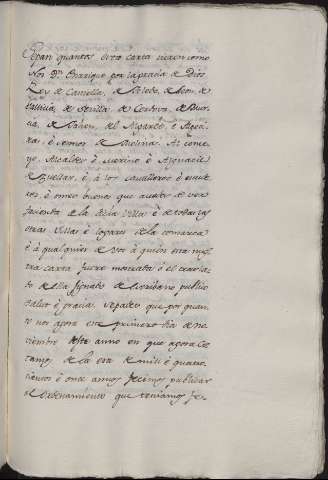 Sepan quantos esta carta vieren como
Nos Dn. Enrrique por la gracia de Dios
Rey de Castilla, de Toledo, de Leon, de
Gallicia, de Sevilla, de Cordova, de Mur-
cia, de Jahen, del Algarbe, é Algeci-
ra, é Sennor de Molina, Al conce-
yo, Alcaldes é merino é Alguacil
de Cuellar, é á los cavalleros é escude-
ros, é omes buenos que avedes de ver
facienda de la dicha villa é de todas las
otras villas é logares de la comarca
é á qualquier de vos á quien esta nues-
tra carta fuere mostrada ó el traslado
de ella signado de Scrivano publico
salut é gracia. Sepades que por quan-
to nos agora en primero dia de no-
viembre deste anno en que agora es-
tamos de la era de mill é quatro-
cientos é once annos fecimos publicar
el Ordenamiento que teniamos fe-